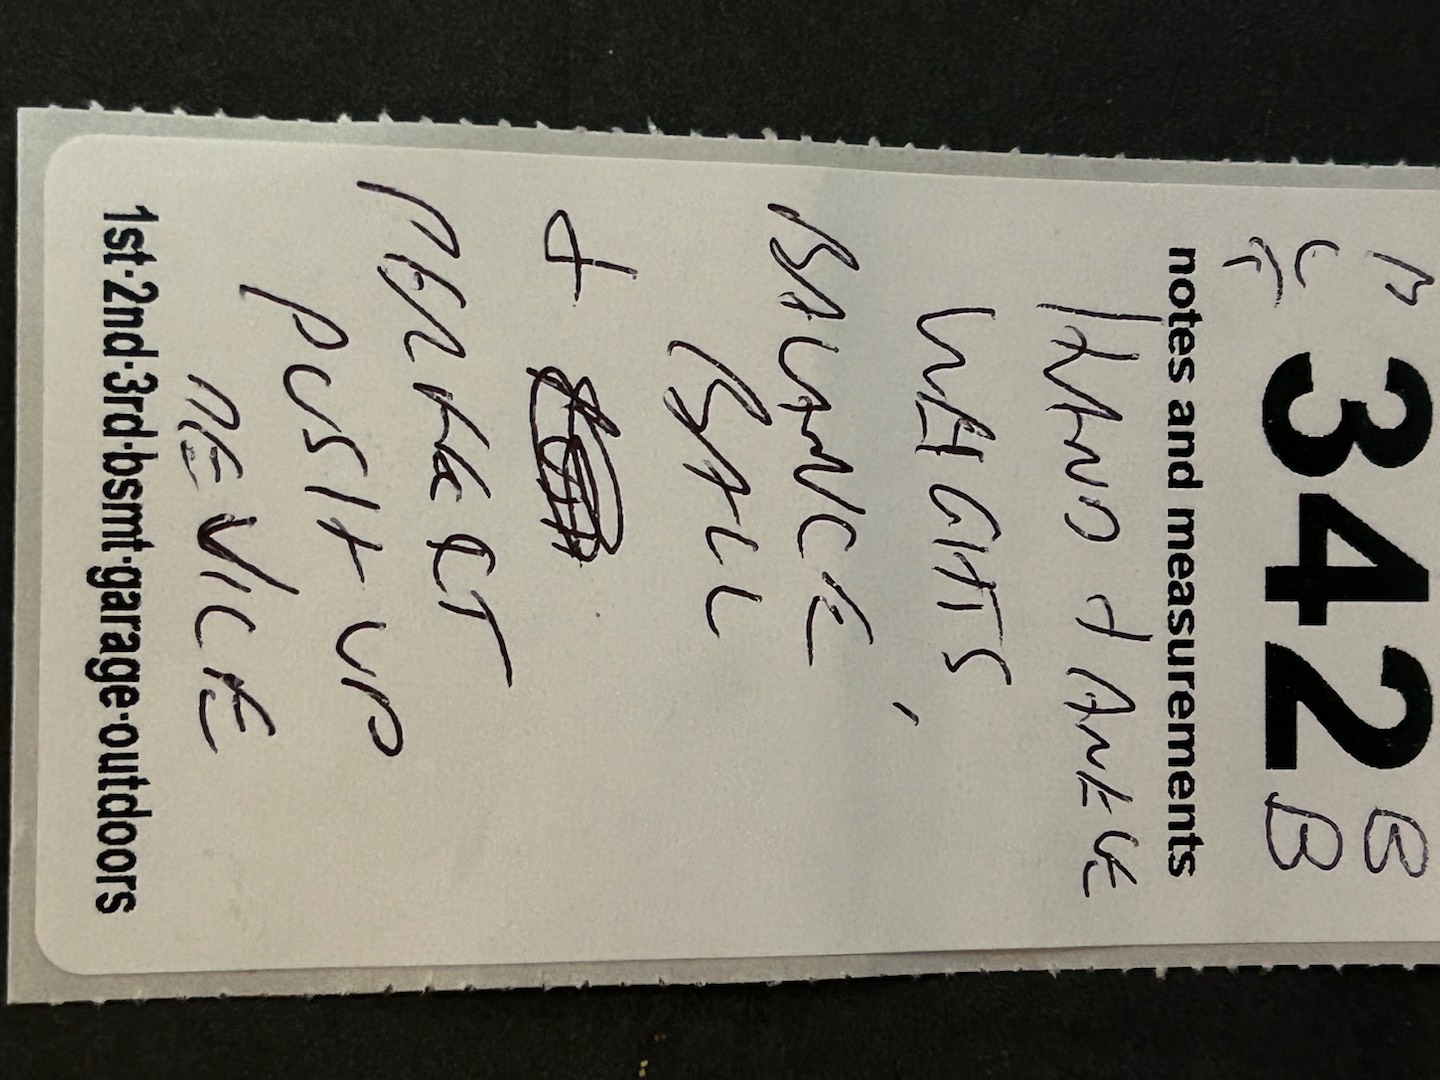 342
BB
notes and measurements
HAND + ANKLE
WEIGHTS,
BALANCE
BALL
+
PERFECT
PUSH UP
DEVICE
1st·2nd·3rd·bsmt·garage·outdoors